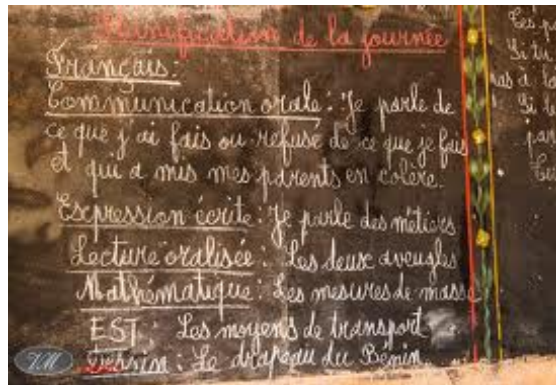 Planification de la journée
Français:
Communication orale: Je parle de
ce que j'ai fais ou refuse de ce que je fais
et qui a mis mes parents en colère.
Expression écrite: Je parle des métiers
Lecture oralisée: Les deux aveugles
Mathématique: Les mesures de masse
EST: Les moyens de transport
Dessin: Le drapeau du Bénin
Si tu